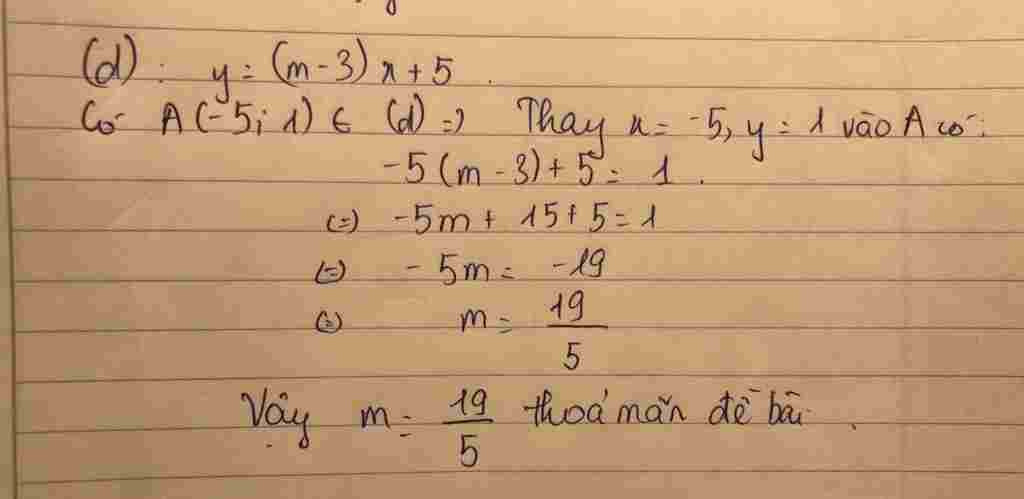 (d): y = (m - 3) x + 5.
Có A(-5; 1) ∈ (d) => Thay x = -5, y = 1 vào A có:
-5(m - 3) + 5 = 1.
(=) -5m + 15 + 5 = 1
(=) -5m = -19
(=) m = 19/5
Vậy m = 19/5 thoả mãn đề bài.